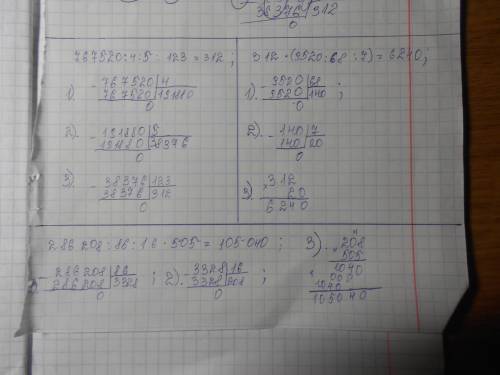 38376 312
0
767520:4:5:123=312;
1) - 767520 4
767520 191880
0
2) - 191880 5
191880 38376
0
3) - 38376 123
38376 312
0
312·(9520:68:7)=6240;
1). - 9520 68 ;
9520 140
0
2). - 140 7
140 20
0
3) × 312
20
6240
286208:86:16·505=105040;
- 286208 86 ;
286208 3328
0
2). - 3328 16 ;
3328 208
0
3). × 208
505
1040
000
1040
105040